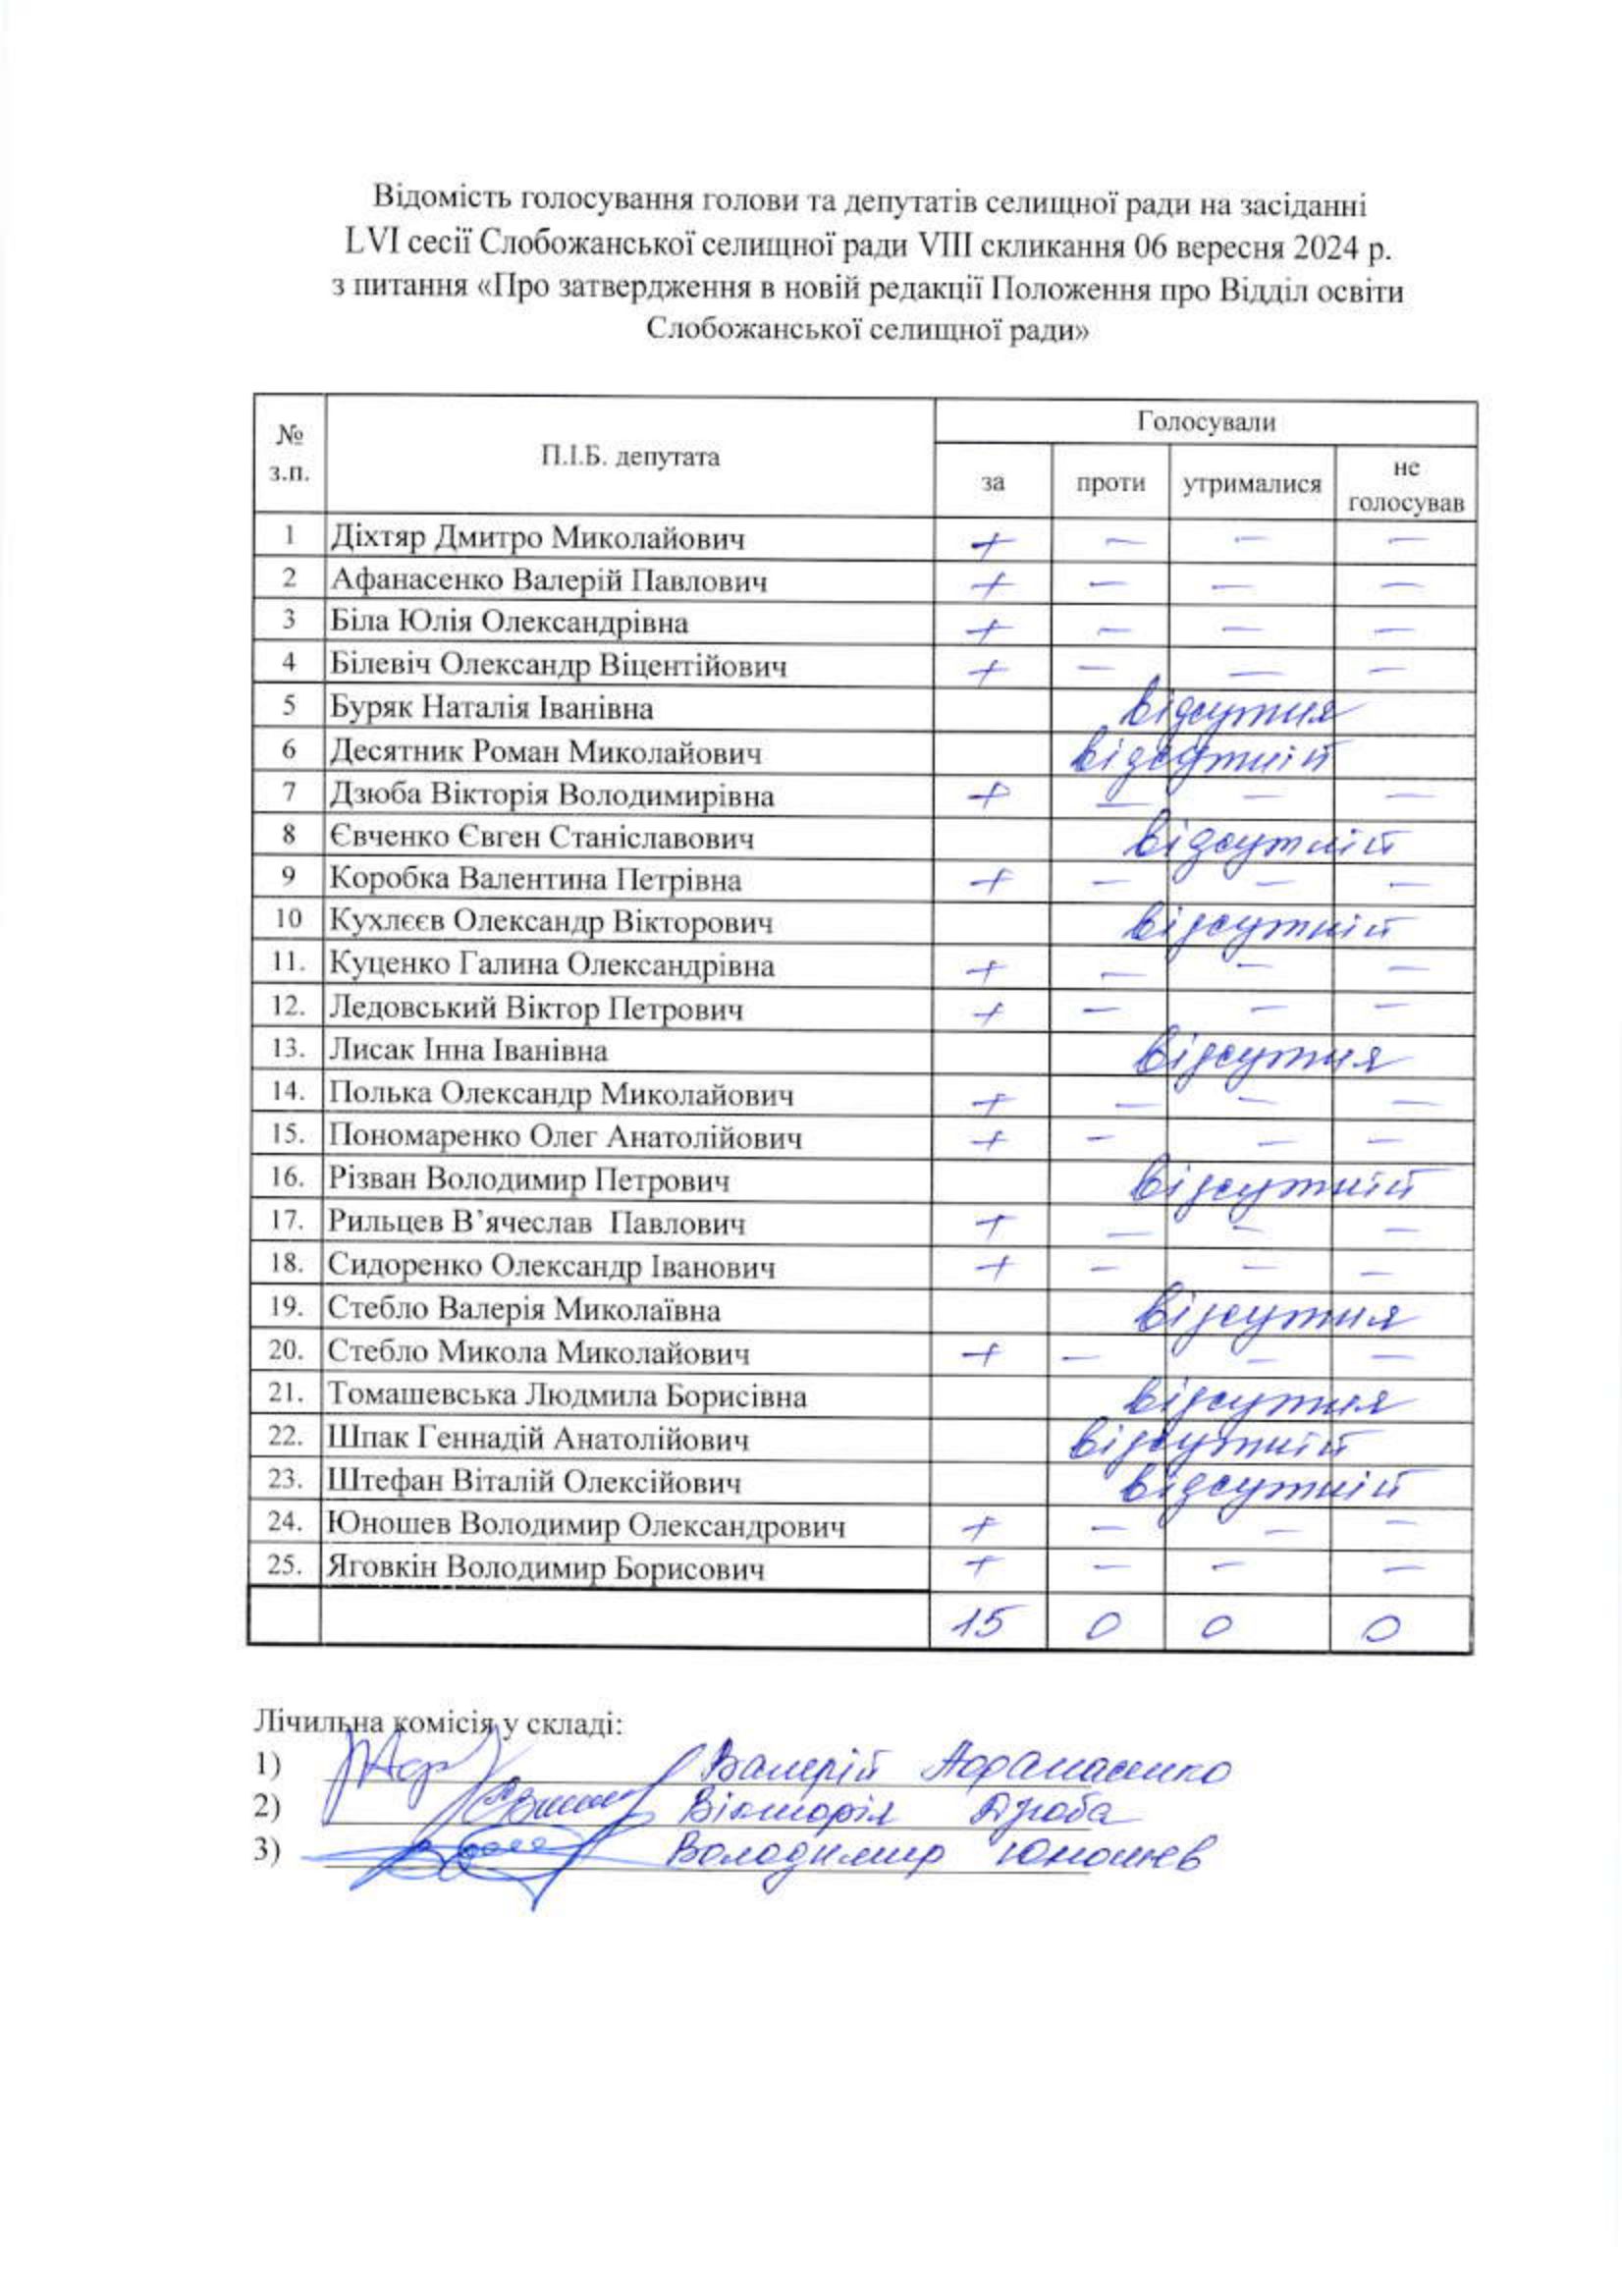 Відомість голосування голови та депутатів селищної ради на засіданні
LVI сесії Слобожанської селищної ради VIII скликання 06 вересня 2024 р.
з питання «Про затвердження в новій редакції Положення про Відділ освіти
Слобожанської селищної ради»
№ з.п. П.І.Б. депутата Голосували
за проти утрималися не голосував
1 Діхтяр Дмитро Миколайович + — — —
2 Афанасенко Валерій Павлович + — — —
3 Біла Юлія Олександрівна + — — —
4 Білевіч Олександр Віцентійович + — — —
5 Буряк Наталія Іванівна відсутня
6 Десятник Роман Миколайович відсутній
7 Дзюба Вікторія Володимирівна + — — —
8 Євченко Євген Станіславович відсутній
9 Коробка Валентина Петрівна + — — —
10 Кухлєєв Олександр Вікторович відсутній
11. Куценко Галина Олександрівна + — — —
12. Ледовський Віктор Петрович + — — —
13. Лисак Інна Іванівна відсутня
14. Полька Олександр Миколайович + — — —
15. Пономаренко Олег Анатолійович + — — —
16. Різван Володимир Петрович відсутній
17. Рильцев В’ячеслав Павлович + — — —
18. Сидоренко Олександр Іванович + — — —
19. Стебло Валерія Миколаївна відсутня
20. Стебло Микола Миколайович + — — —
21. Томашевська Людмила Борисівна відсутня
22. Шпак Геннадій Анатолійович відсутній
23. Штефан Віталій Олексійович відсутній
24. Юношев Володимир Олександрович + — — —
25. Яговкін Володимир Борисович + — — —
15 0 0 0
Лічильна комісія у складі:
1) Валерій Афанасенко
2) Вікторія Дзюба
3) Володимир Юношев